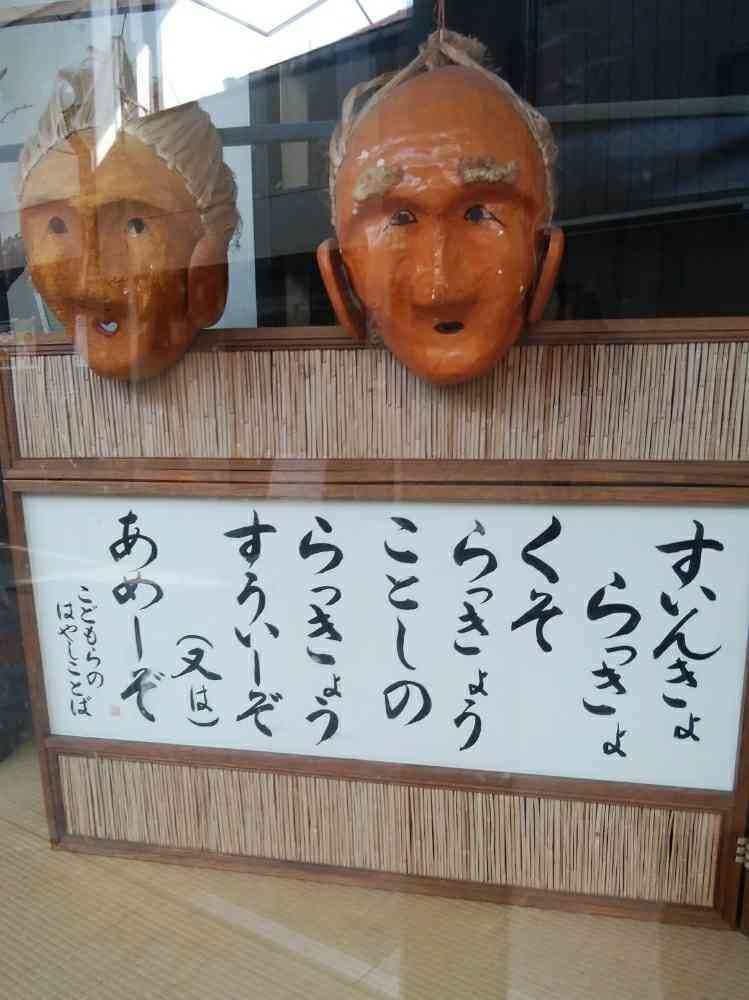 すいんきょ
らっきょ
くそ
らっきょう
ことしの
らっきょう
すういーぞ
(又は)
あめーぞ
こどもらの
はやしことば